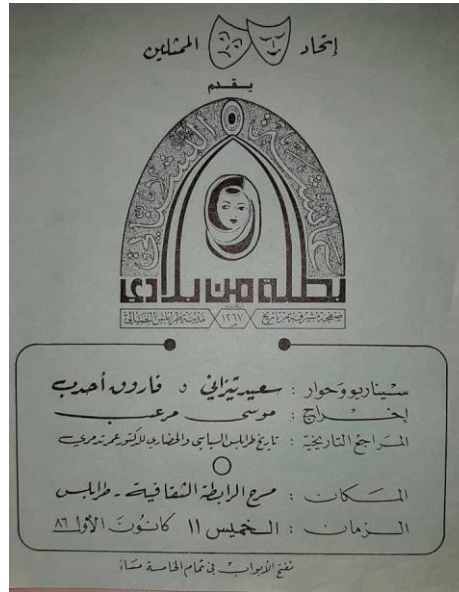 إتحاد الممثلين
يقدم
عائشة البشناتي
بطلة من بلادي
صفحة مشرقة من تاريخ ١٢٦٧ مدينة طرابلس النضالي
سيناريو وحوار : سعيد تيزاني و فاروق أحدب
إخراج : موسى مرعب
المراجع التاريخية : تاريخ طرابلس السياسي والحضاري للدكتور عمر تدمري
المكان : مسرح الرابطة الثقافية - طرابلس
الزمان : الخميس ١١ كانون الأول ٨٦
تفتح الأبواب في تمام الخامسة مساءً